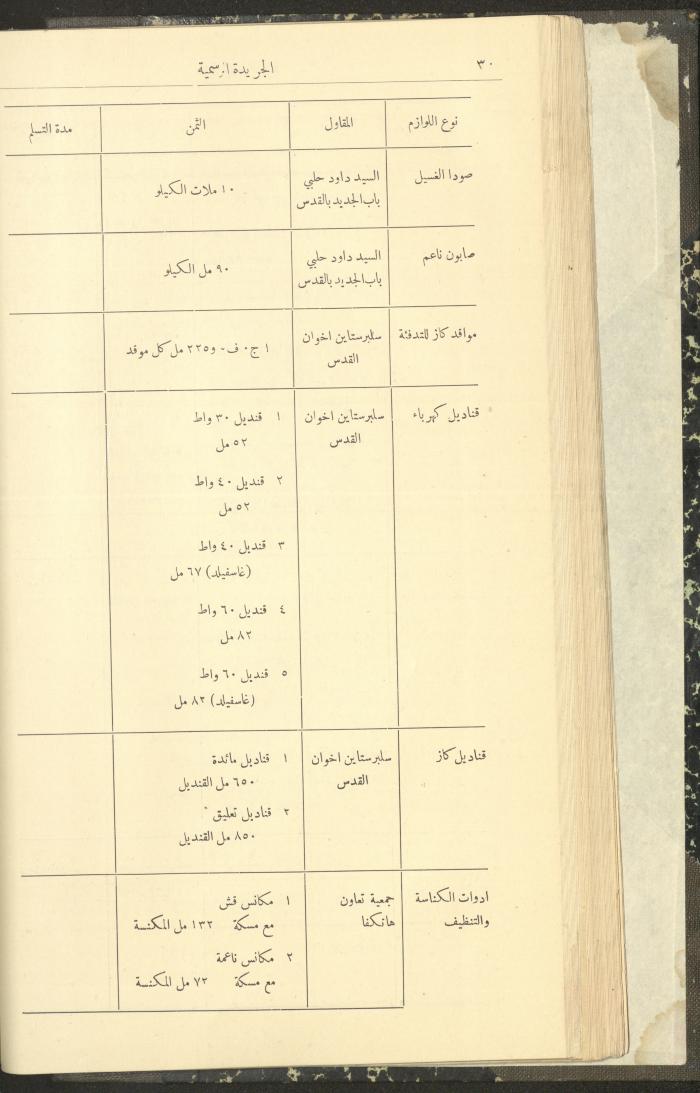 ٣٠
الجريدة الرسمية
نوع اللوازم
المقاول
الثمن
مدة التسلم
صودا الغسيل
السيد داود حلبي
باب الجديد بالقدس
١٠ ملات الكيلو
صابون ناعم
السيد داود حلبي
باب الجديد بالقدس
٩٠ مل الكيلو
مواقد كاز للتدفئة
سلبرستاين اخوان
القدس
١ ج٠ ف- و٢٢٥ مل كل موقد
قناديل كهرباء
سلبرستاين اخوان
القدس
١ قنديل ٣٠ واط
٥٢ مل
٢ قنديل ٤٠ واط
٥٢ مل
٣ قنديل ٤٠ واط
(غاسفيلد) ٦٧ مل
٤ قنديل ٦٠ واط
٨٢ مل
٥ قنديل ٦٠ واط
(غاسفيلد) ٨٢ مل
قناديل كاز
سلبرستاين اخوان
القدس
١ قناديل مائدة
٦٥٠ مل القنديل
٢ قناديل تعليق
٨٥٠ مل القنديل
ادوات الكناسة
والتنظيف
جمعية تعاون
هانكفا
١ مكانس قش
مع مسكة ١٣٢ مل المكنسة
٢ مكانس ناعمة
مع مسكة ٧٢ مل المكنسة